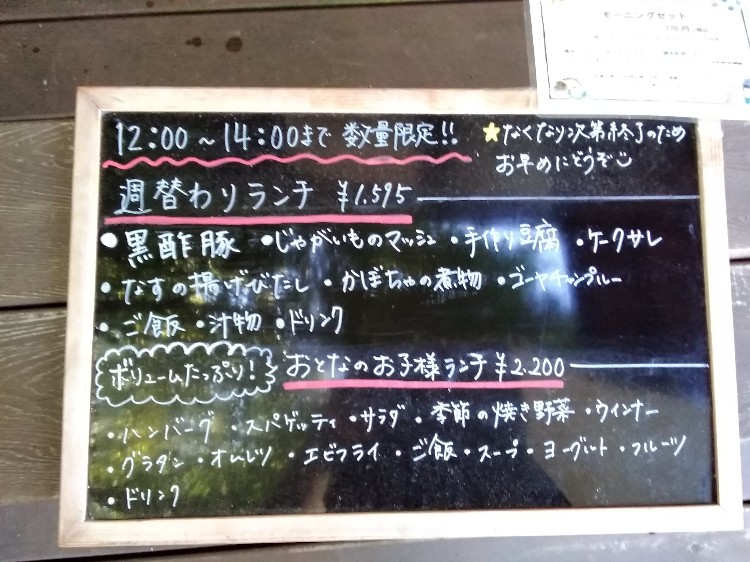 モーニングセット
12:00～14:00まで 数量限定!!
★なくなり次第終了のため
お早めにどうぞ
週替わりランチ ¥1.595
●黒酢豚 ・じゃがいものマッシュ ・手作り豆腐 ・ケークサレ
・なすの揚げびたし ・かぼちゃの煮物 ・ゴーヤチャンプルー
・ご飯 ・汁物 ・ドリンク
ボリュームたっぷり! おとなのお子様ランチ ¥2.200
・ハンバーグ ・スパゲッティ ・サラダ ・季節の焼き野菜 ・ウインナー
・グラタン ・オムレツ ・エビフライ ・ご飯 ・スープ ・ヨーグルト ・フルーツ
・ドリンク